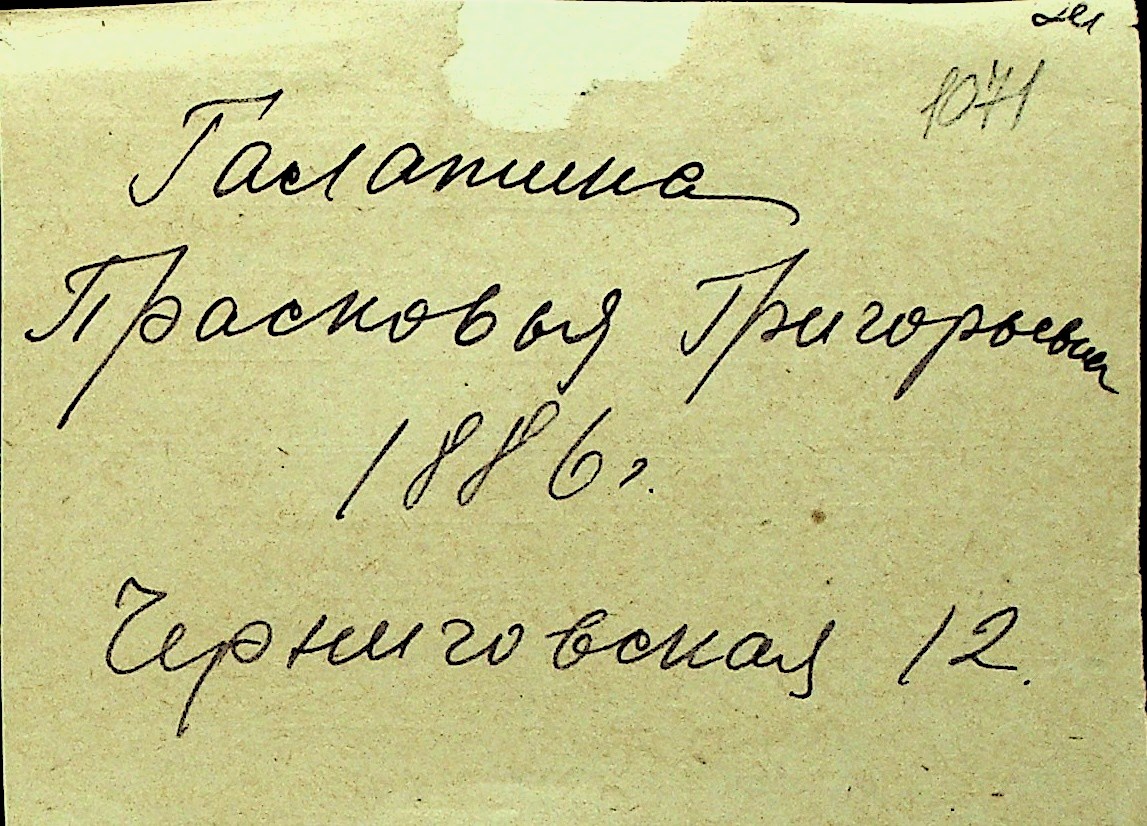 1071
Прасковья Григорьевна
1886 г.
Черниговская 12.